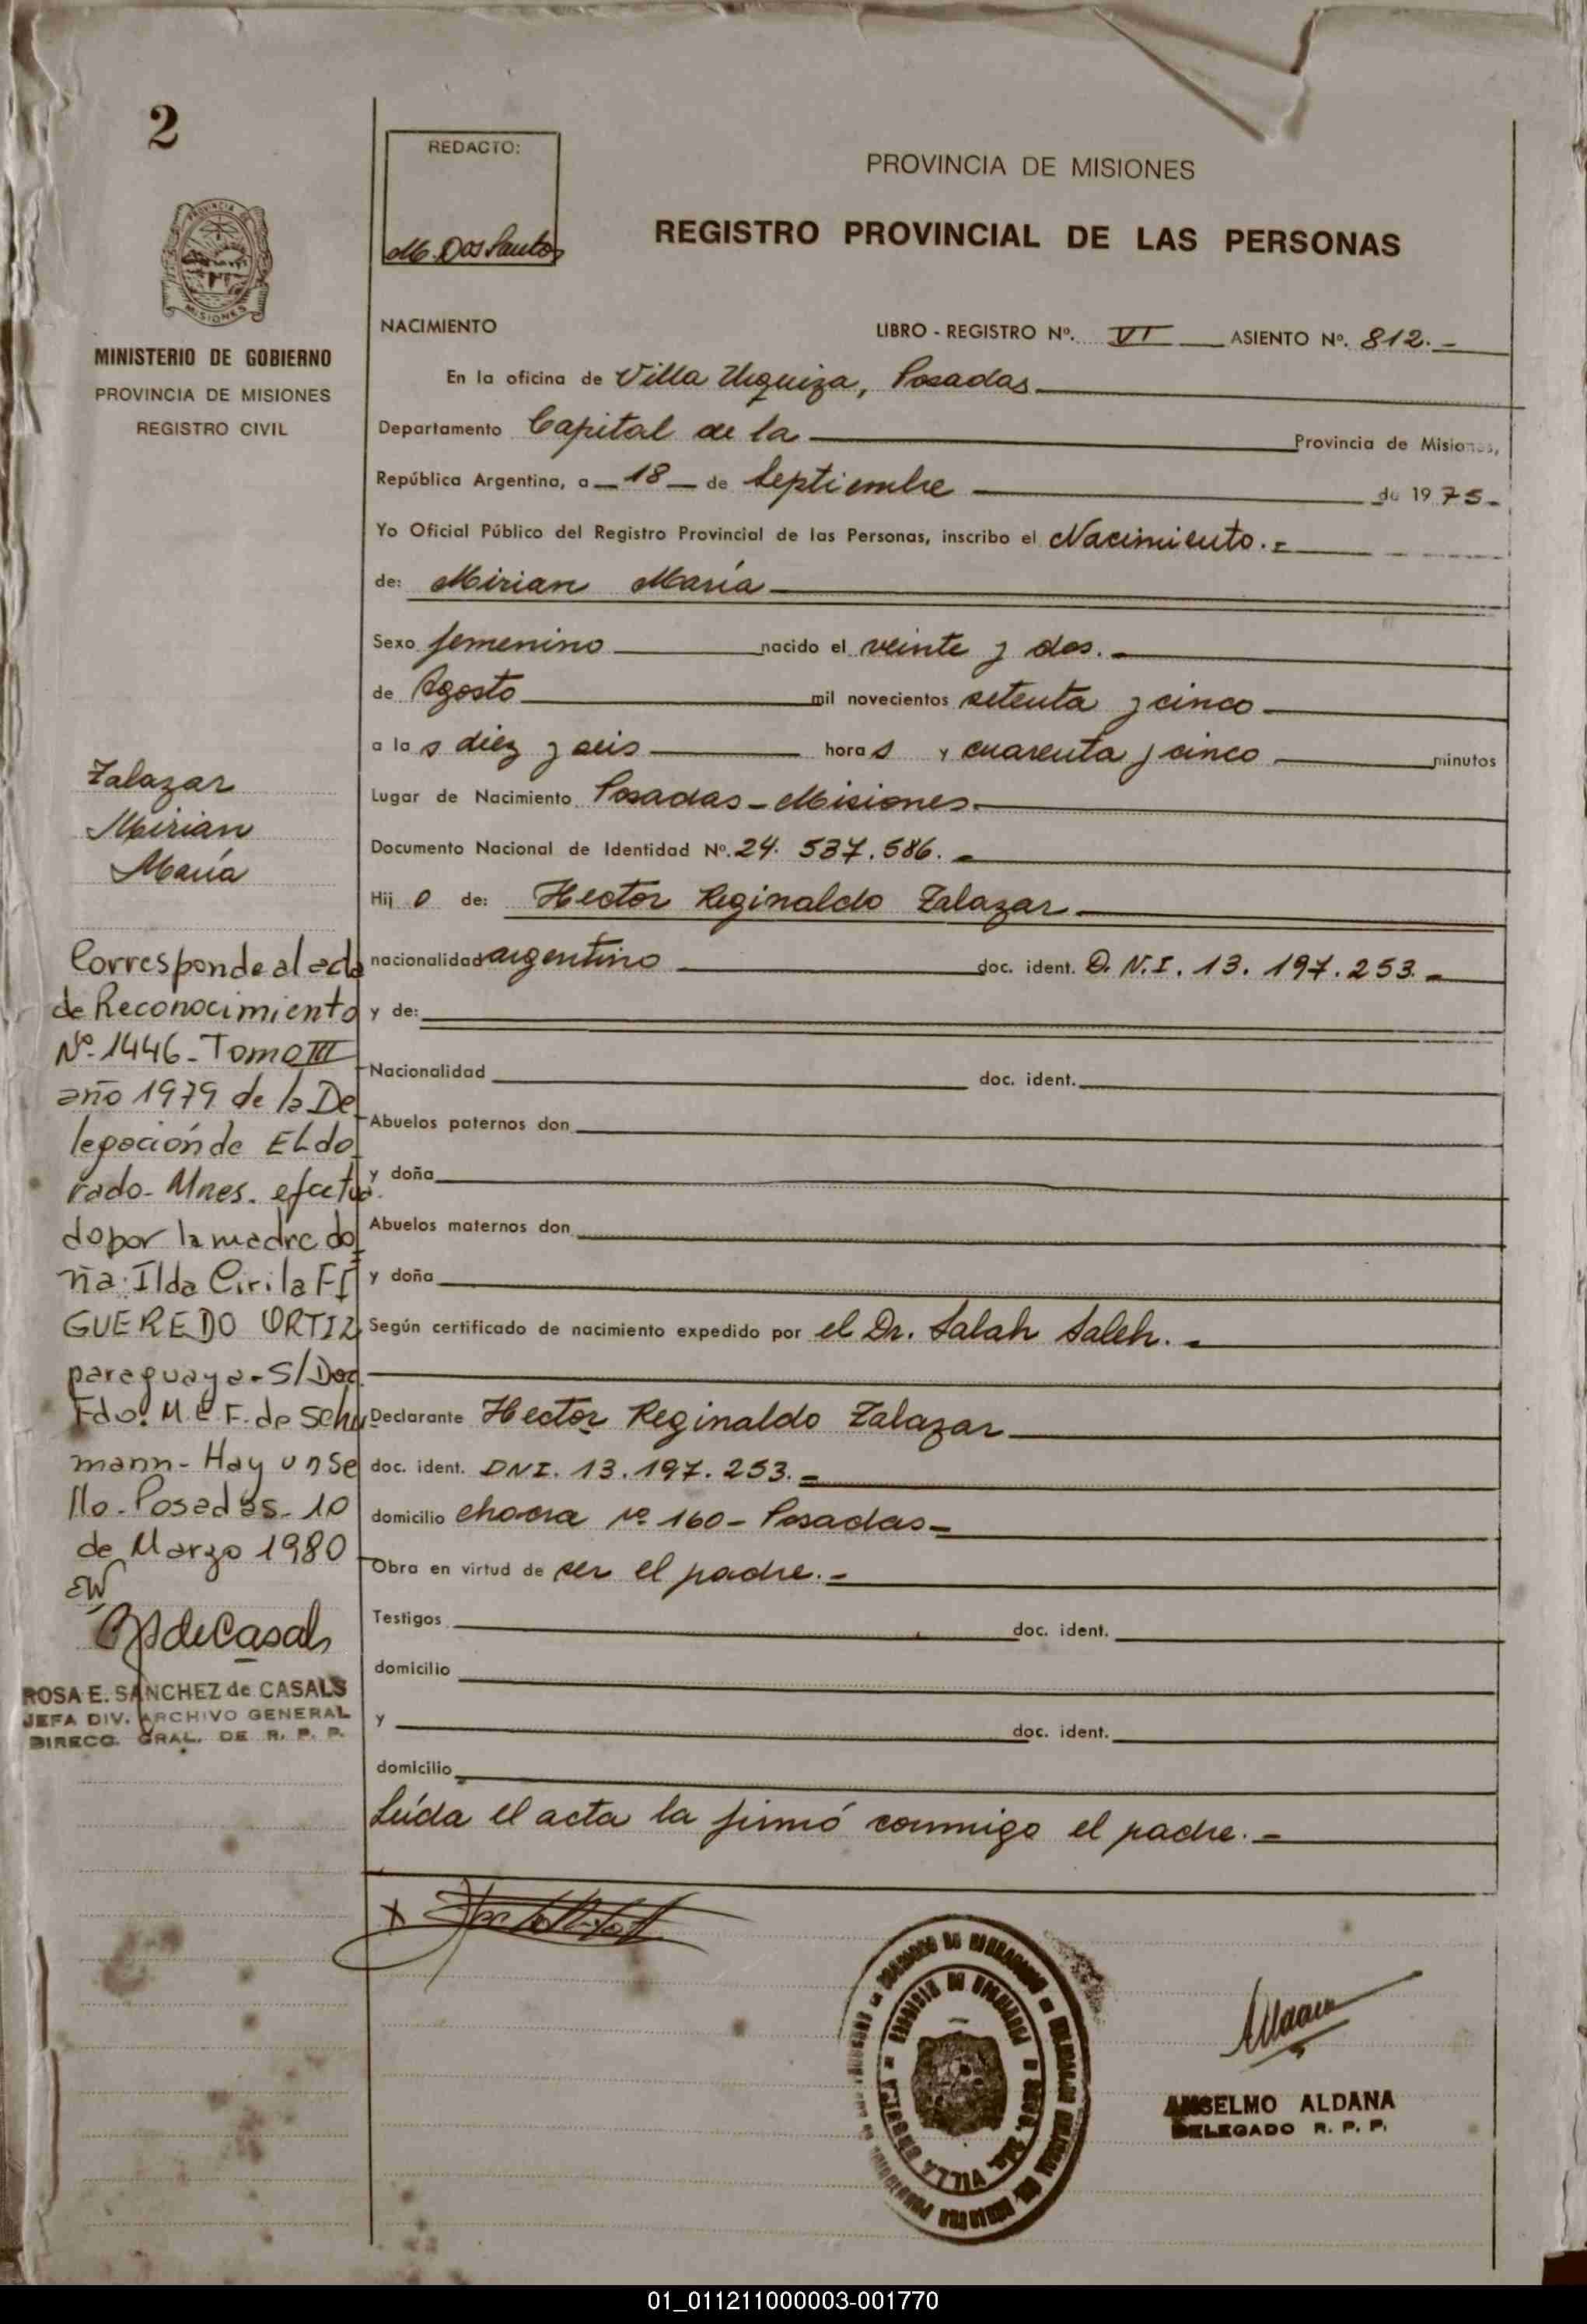 2
REDACTO:
M. Dos Santos
PROVINCIA DE MISIONES
REGISTRO PROVINCIAL DE LAS PERSONAS
PROVINCIA DE
MISIONES
MINISTERIO DE GOBIERNO
PROVINCIA DE MISIONES
REGISTRO CIVIL
NACIMIENTO
LIBRO - REGISTRO Nº. VI ASIENTO Nº. 812.-
En la oficina de Villa Urquiza, Posadas
Departamento Capital de la Provincia de Misiones,
República Argentina, a 18 de Septiembre de 1975-
Yo Oficial Público del Registro Provincial de las Personas, inscribo el Nacimiento.-
de: Mirian María
Sexo femenino nacido el veinte y dos.-
de Agosto mil novecientos setenta y cinco
a las diez y seis horas y cuarenta y cinco minutos
Lugar de Nacimiento Posadas-Misiones
Documento Nacional de Identidad Nº. 24. 537.586.-
Hijo de: Hector Reginaldo Zalazar
nacionalidad argentino doc. ident. D.N.I. 13.197.253.-
y de:
Nacionalidad doc. ident.
Abuelos paternos don
y doña
Abuelos maternos don
y doña
Según certificado de nacimiento expedido por el Dr. Salah Saleh.-
Declarante Hector Reginaldo Zalazar
doc. ident. DNI. 13.197.253.-
domicilio chacra nº 160- Posadas-
Obra en virtud de ser el padre.-
Testigos doc. ident.
domicilio
y doc. ident.
domicilio
Leída el acta la firmó conmigo el padre.-
Zalazar
Mirian
María
Corresponde al acta
de Reconocimiento
Nº-1446-Tomo III
año 1979 de la De
legación de Eldo
rado-Mnes. efectua
do por la madre do
ña: Ilda Cirila FI
GUEREDO ORTIZ
paraguaya-S/Doc.
Fdo. M.E.F. de Schu
mann- Hay un Se
llo-Posadas-10
de Marzo 1980
EW
ROSA E. SANCHEZ de CASALS
JEFA DIV. ARCHIVO GENERAL
DIRECC. GRAL. DE R. P. P.
VILLA URQUIZA
ANSELMO ALDANA
DELEGADO R. P. P.
01_011211000003-001770